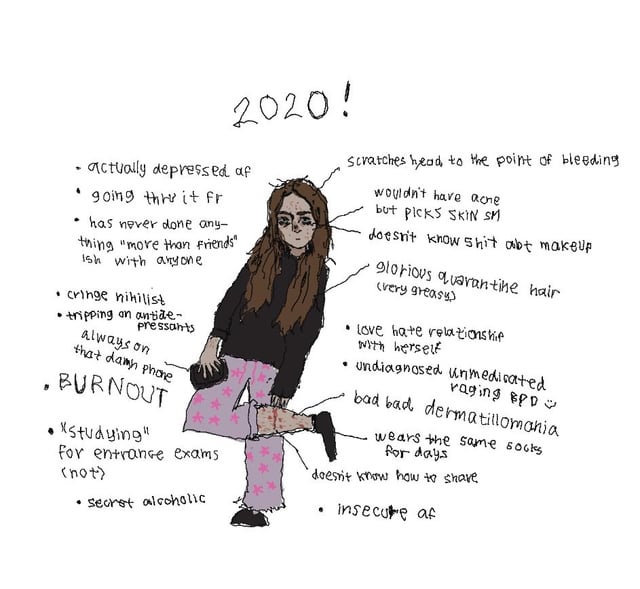 2020!
• actually depressed af
• going thru it fr
• has never done any-
thing "more than friends"
ish with anyone
• cringe nihilist
• tripping on antide-
pressants
always on
that damn phone
• BURNOUT
• "studying"
for entrance exams
(not)
• secret alcoholic
scratches head to the point of bleeding
wouldn't have acne
but picks skin sm
doesn't know shit abt makeup
glorious quarantine hair
(very greasy)
• love hate relationship
with herself
• undiagnosed unmedicated
raging BPD
bad bad dermatillomania
wears the same socks
for days
doesn't know how to shave
• insecure af